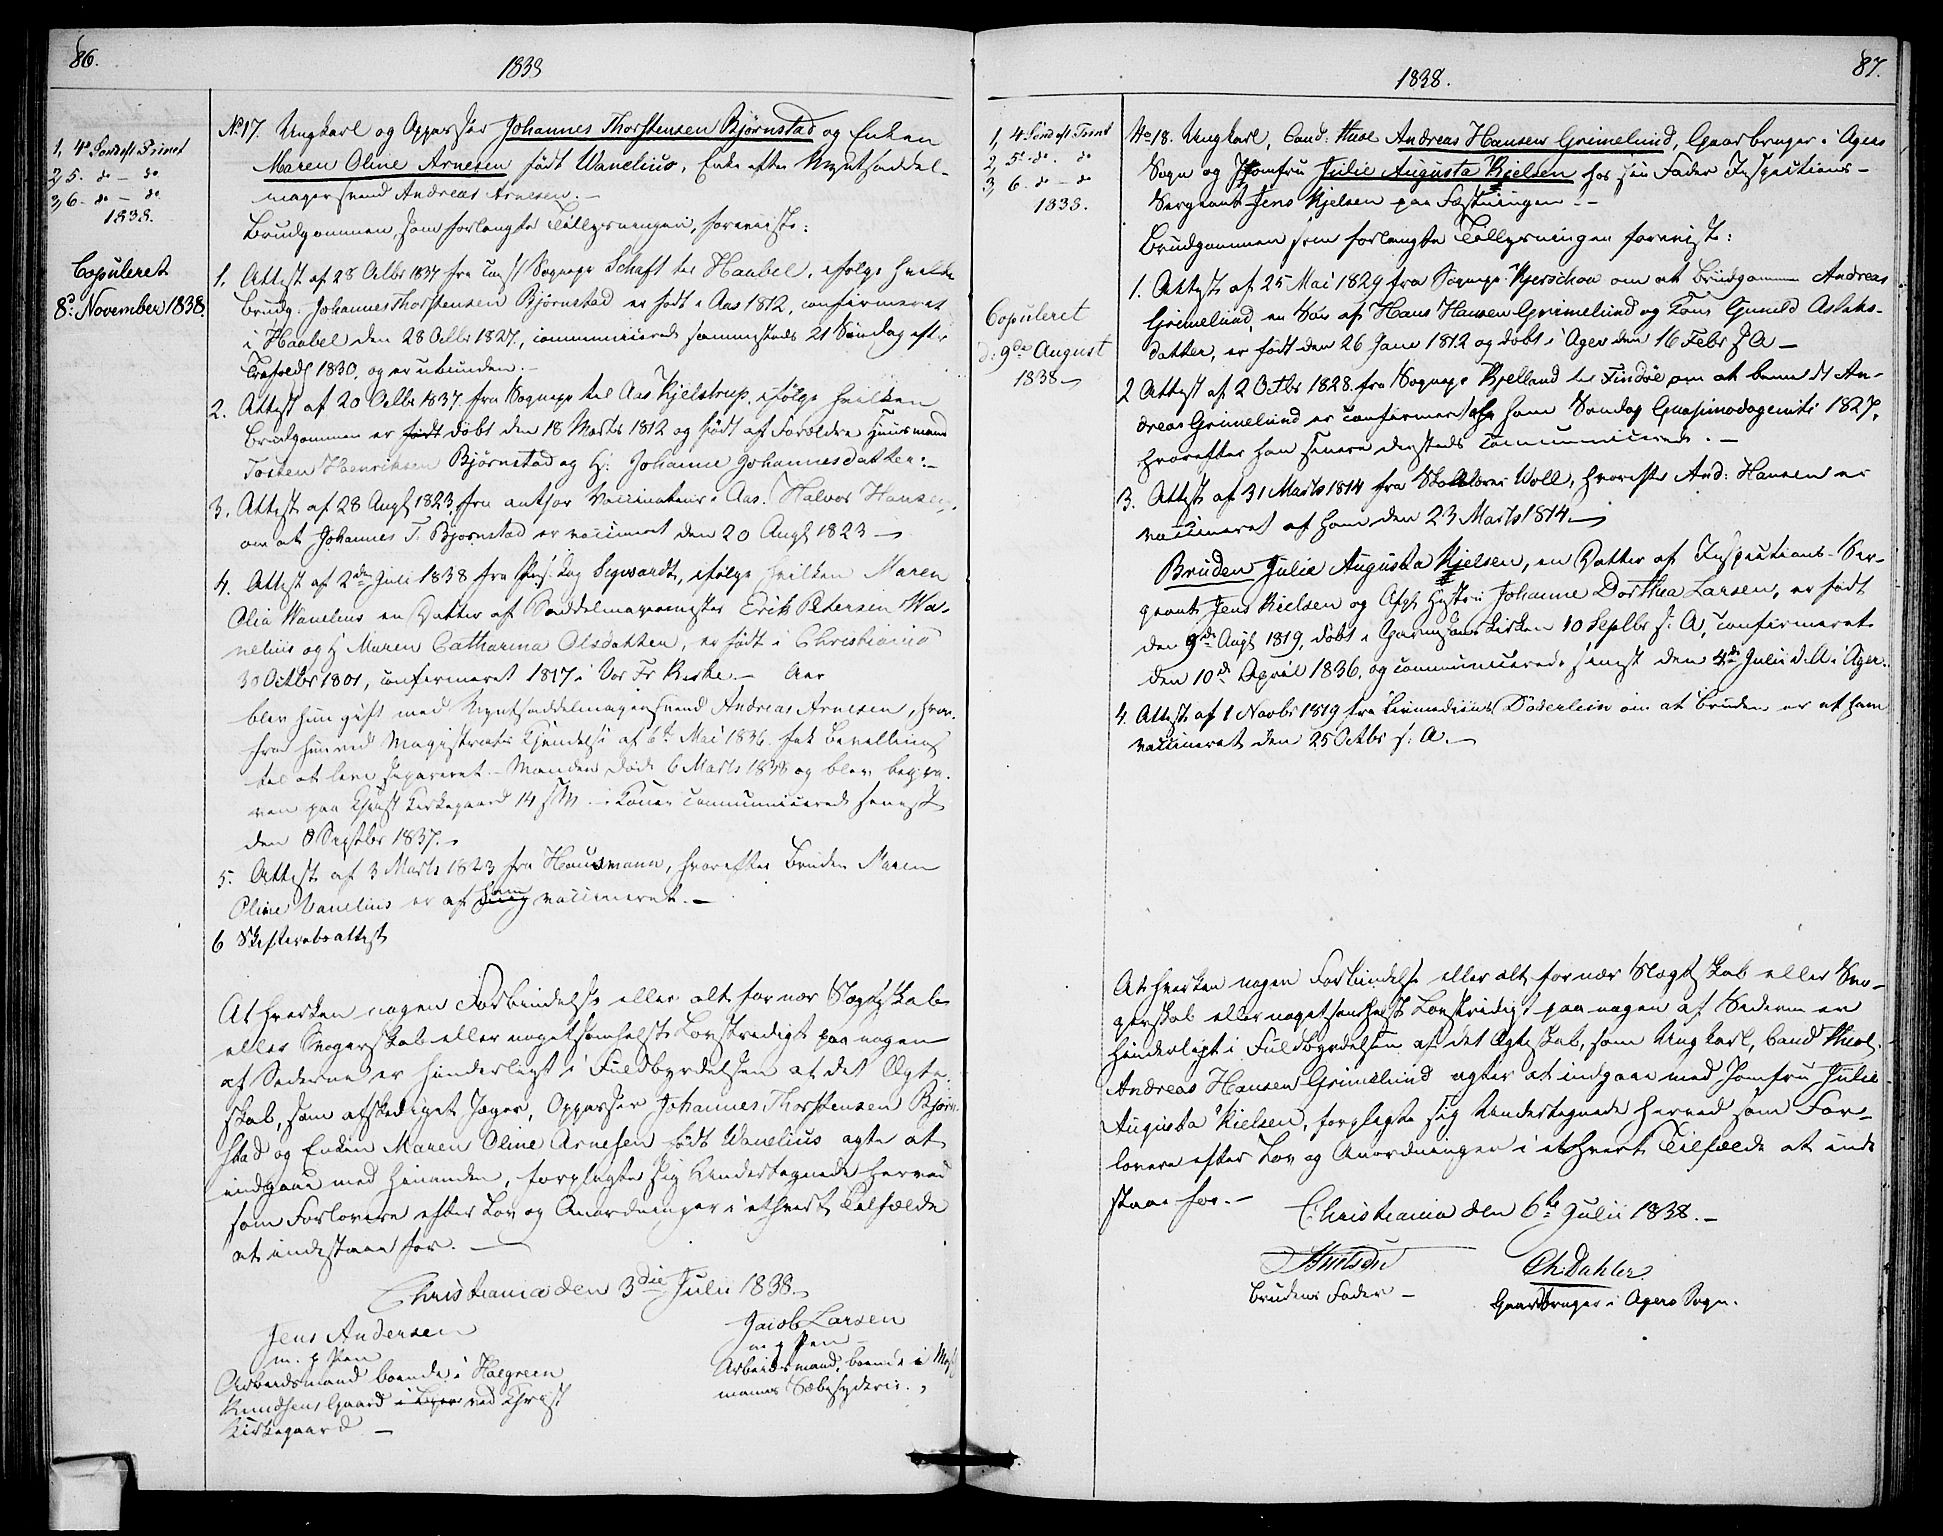 86.
1838
1, 4de Sønd eft Trinit
2, 5. do — do
3, 6 - do — do
1838.
Copuleret
8de November 1838.
No 17. Ungkarl og Oppasser Johannes Thorstensen Bjørnstad og Enken
Maren Oline Arnesen født Wanelius, Enke efter
magersvend Andreas Arnesen. —
Brudgommen, som forlangte Tillysningen, foreviste:
1. Attest af 28 Octbr 1837 fra Sognepr Schaft til Haabel, ifølge hvilken
Brudg. Johannes Thorstensen Bjørnstad er født i Aas 1812, confirmeret
i Haabel den 28 Octbr 1827, communiceret sammesteds 21 Søndag eft.
Trefoldh 1830, og er ubunden. —
2. Attest af 20 Octbr 1837 fra Sognepr til Aas Kjelstrup, ifølge hvilken
Brudgommen er født døbt den 18 Marts 1812 og født af Forældre Huusmand
Tosten Henriksen Bjørnstad og H. Johanne Johannesdatter. —
3. Attest af 28 Augst 1823 fra author Vaccinateur i Aas, Halvor Hansen,
om at Johannes T. Bjørnstad er vaccineret den 20 Augst 1823 —
4. Attest af 2den Juli 1838 fra Cap Sigwardt, ifølge hvilken Maren
Olia Wanelius en Datter af Saddelmagermester Erik Petersen Wa-
nelius og H Maren Catharina Olsdatter, er født i Christiania
30 Octbr 1801, confirmeret 1817 i Vor Fr Kirke. — Aar
blev hun gift med Andreas Arnesen, hvor-
fra hun ved Magistratens Kjendelse af 6te Mai 1836 fik Bevilling
til at leve separeret. — Manden døde 6 Marts 1838 og blev begra-
ven paa Christ Kirkegaard 14 s M. — Konen communicerede senest
den 8 Septbr 1837. —
5. Attest af 3 Marts 1823 fra Hausmann, hvorefter Bruden Maren
Oline Vanelius er af ham vaccineret. —
6 Skifteretsattest
At hverken nogen Forbindelse eller alt for nær Slægtskab
eller Svogerskab eller nogetsomhelst Lovstridigt paa nogen
af Siderne er hinderligt i Fuldbyrdelsen af det Ægte-
skab, som afskediget Jæger, Oppasser Johannes Thorstensen Bjørn-
stad og Enken Maren Oline Arnesen født Wanelius agte at
indgaae med hinanden, forpligte sig Undertegnede herved
som Forlovere efter Lov og Anordninger i ethvert Tilfælde
at indestaae for. —
Christiania den 3die Julii 1838. —
Jens Andersen
m. p Pen
Arbeidsmand boende i Halgreen
Knudsens Gaard i Ager ved Christ
Kirkegaard —
Jacob Larsen
m p Pen
Arbeidsmand, boende i
manns Sæbesyderie.
87.
1838.
1, 4 Sønd eft Trinit
2, 5 do. do
3, 6 - do — do
1838.
Copuleret
d: 9de August
1838 —
No 18. Ungkarl, Cand: theol Andreas Hansen Grimelund, Gaardbruger i Agers
Sogn og Jomfru Julie Augusta Nielsen hos sin Fader Inspections-
Sergeant Jens Nielsen paa Fæstningen. —
Brudgommen som forlangte Tillysningen forevist:
1. Attest af 25 Mai 1829 fra Sognepr Kjerschou om at Brudgommen Andreas
Grimelund, en Søn af Hans Hansen Grimelund og Kone Gunild Aslaks-
datter, er født den 26 Janr 1812 og døbt i Ager den 16 Febr s A —
2 Attest af 2 Octbr 1828 fra Sognepr Kjelland til Findöe om at bemeldt An-
dreas Grimelund er confirmeret af ham Søndag Quasimodogeniti 1827,
hvorefter han senere dersteds communicerede. —
3. Attest af 31 Marts 1814 fra Skolelærer Woll, hvorefter And: Hansen er
vaccineret af ham den 23 Marts 1814. —
Bruden Julie Augusta Nielsen, en Datter af Inspections-Ser-
geant Jens Nielsen og Hustru Johanne Dorthea Larsen, er født
den 9de Augst 1819, døbt i Garnisons Kirken 10 Septbr s: A, confirmeret
den 10de April 1836, og communicerede senest den 4de Julii d. A. i Ager.
4 Attest af 1 Novbr 1819 fra Døderlein om at Bruden er af ham
vaccineret den 25 Octbr s: A. —
At hverken nogen Forbindelse eller alt for nær Slægtskab eller Svo-
gerskab eller nogetsomhelst Lovstridigt paa nogen af Siderne er
hinderligt i Fuldbyrdelsen af det Ægteskab, som Ungkarl, Cand Theol.
Andreas Hansen Grimelund agter at indgaae med Jomfru Julie
Augusta Nielsen, forpligte sig Undertegnede herved som For-
lovere efter Lov og Anordninger i ethvert Tilfælde at inde
staae for. —
Christiania den 6te Julii 1838. —
JNielsen
Brudens Fader —
Ch. Dahler.
Gaardbruger i Agers Sogn.